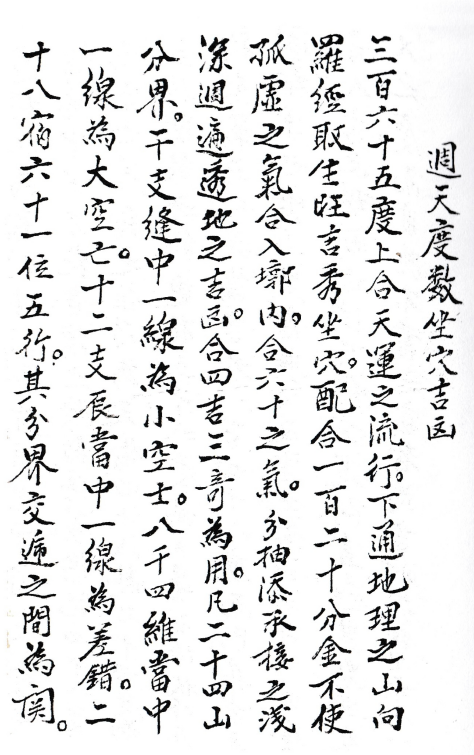 週天度数坐穴吉凶
三百六十五度上合天運之流行。下通地理之山向
羅經取生旺吉秀坐穴。配合一百二十分金不使
孤虛之氣合入塚內。合六十之氣。分抽添承接之淺
深週遍透地之吉凶。合四吉三奇為用。凡二十四山
分界。干支縫中一線為小空亡。八干四維當中
一線為大空亡。十二支辰當中一線為差錯。二
十八宿六十一位五行。其分界交遞之間為関。